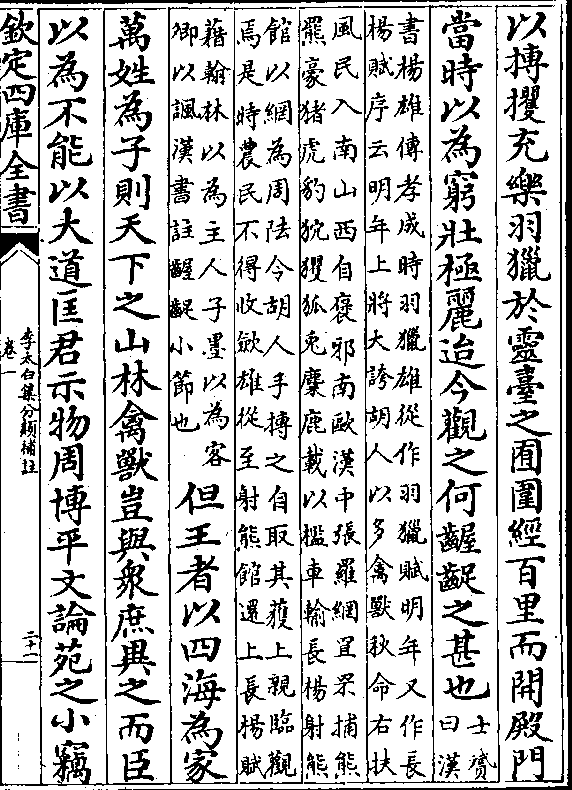 以搏攫充樂羽獵於靈臺之囿圍經百里而開殿門
當時以為窮壯極麗迨今觀之何齷齪之甚也士贇
曰漢
書楊雄傳孝成時羽獵雄從作羽獵賦明年又作長
楊賦序云明年上將大誇胡人以多禽獸秋命右扶
風民入南山西自褒邪南歐漢中張羅網罝罘捕熊
羆豪猪虎豹狖玃狐兎麋鹿載以檻車輸長楊射熊
館以網為周阹令胡人手搏之自取其獲上親臨觀
焉是時農民不得收斂雄從至射熊館還上長楊賦
藉翰林以為主人子墨以為客
卿以諷漢書註齷齪小節也
但王者以四海為家
萬姓為子則天下之山林禽獸豈與衆庶異之而臣
以為不能以大道匡君示物周博平文論苑之小竊
欽定四庫全書
李太白集分類補註
卷一
二十一